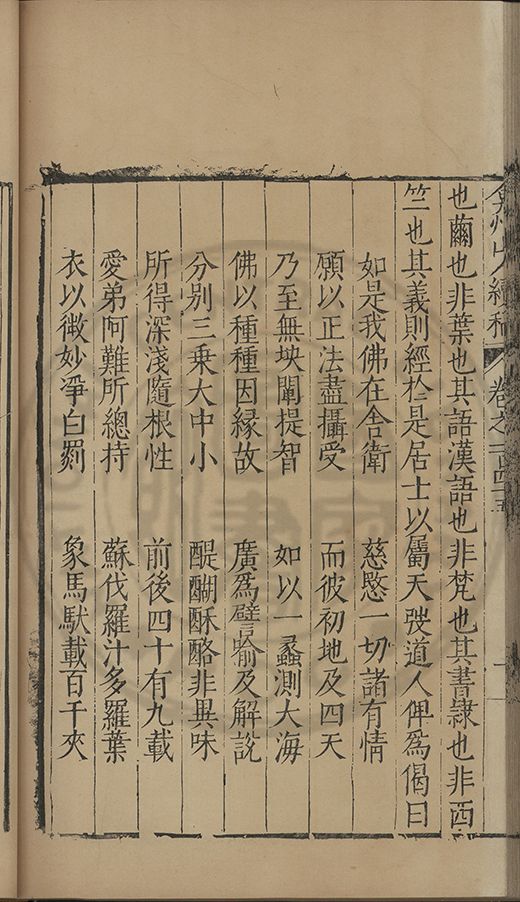 弇州山人續稿 卷之一百四十五
也繭也非葉也其語漢語也非梵也其書隷也非西
竺也其義則經於是居士以屬天弢道人俾為偈曰
如是我佛在舎衛 慈愍一切諸有情
願以正法盡攝受 而彼初地及四天
乃至無抰闡提智 如以一蠡測大海
佛以種種因緣故 廣為譬喻及解說
分别三乗大中小 醍醐酥酪非異味
所得深淺隨根性 前後四十有九載
愛弟阿難所總持 蘇伐羅汁多羅葉
衣以微妙淨白㲲 象馬馱載百千夾